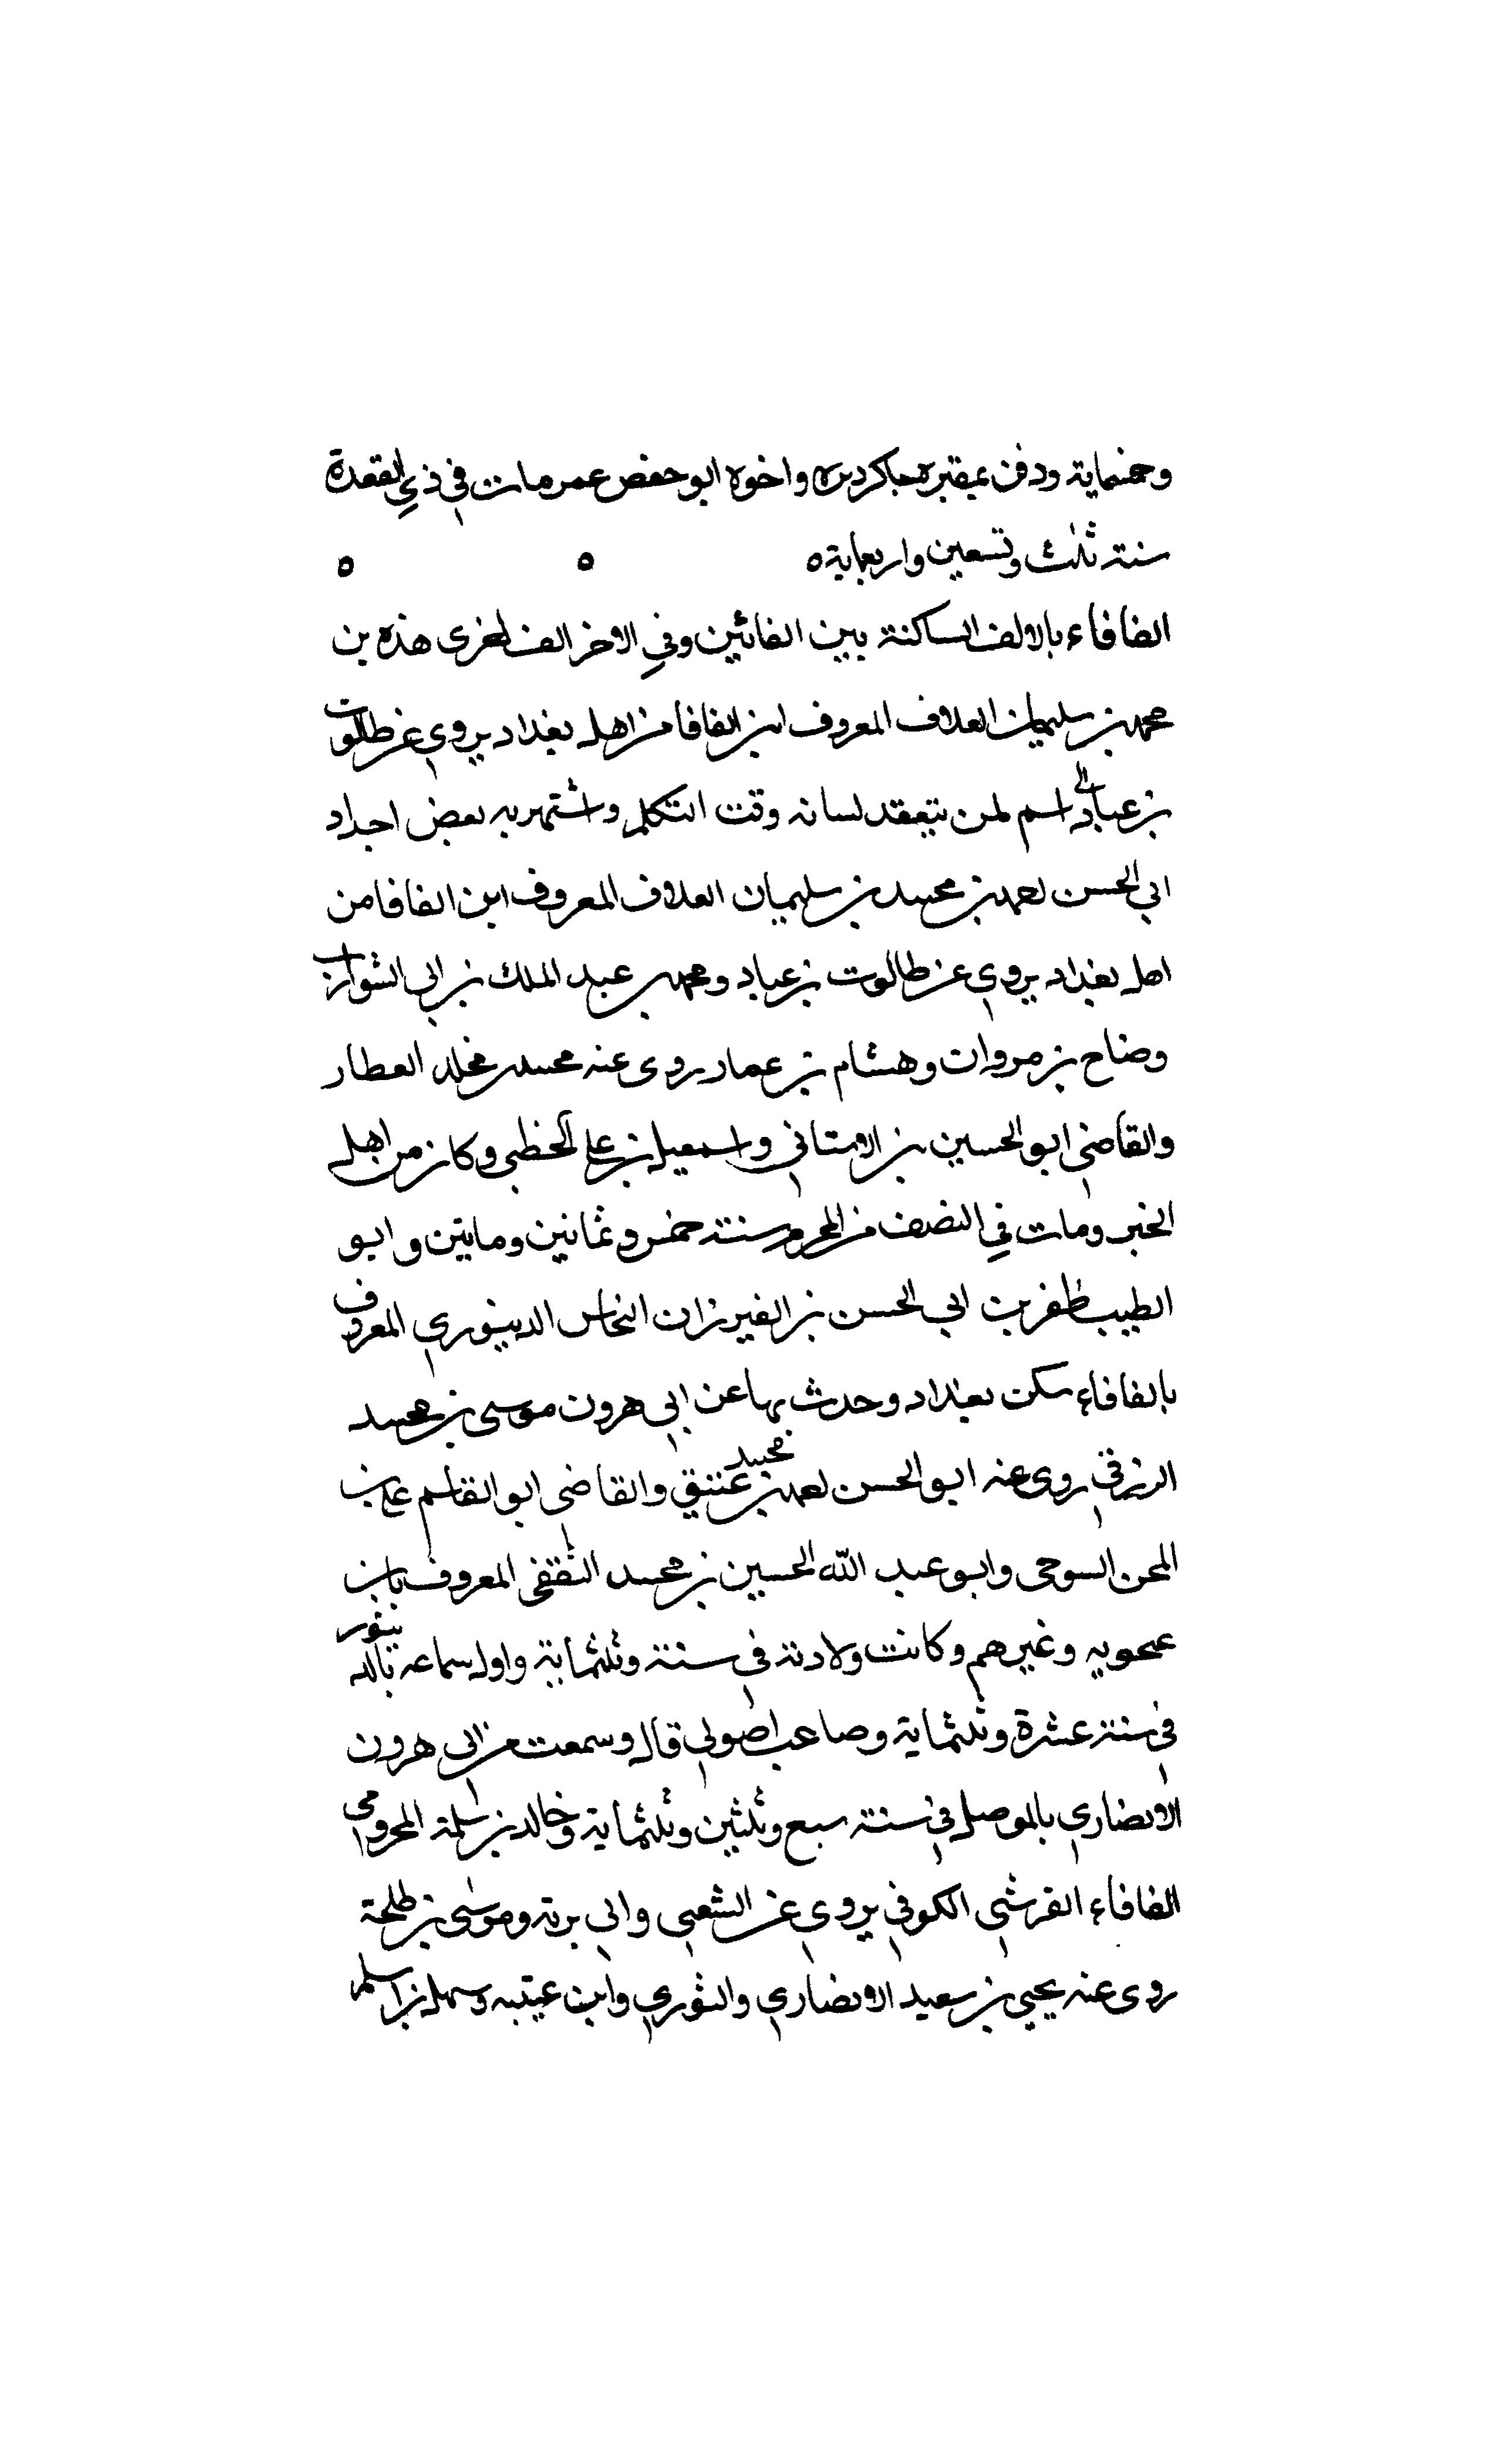 وخمسماية ودفن بمقبرة جاكرديزه واخوه ابو حفص عمر مات في ذي القعدة
سنة ثلث وتسعين واربعماية ه ه ه
الفافاء بالالف الساكنة بين الفائين وفي الاخر الف اخرى هذه بن
محمد بن سليمان العلاف المعروف ابن الفافا من اهل بغداد يروي عن طالوت
بن عباد اسم لمن يتعقد لسانه وقت التكلم واشتهر به بعض اجداد
ابي الحسن احمد بن محمد بن سليمان العلاف المعروف ابن الفافا من
اهل بغداد يروي عن طالوت بن عباد ومحمد بن عبد الملك بن ابي الشوارب
وضاح بن مروان وهشام بن عمار روى عنه محمد بن مخلد العطار
والقاضي ابو الحسين بن الاشناني واسمعيل بن علي الخطبي وكان من اهل
الخير ومات في النصف من المحرم سنة خمس وثمانين ومايتين وابو
الطيب ظفر بن ابي الحسن بن الفيرزان النحاس الدينوري المعروف
بالفافاء سكن بغداد وحدث بها عن ابي هرون موسى بن محمد
الزرقي روى عنه ابو الحسن احمد بن محمد عتيقي والقاضي ابو القاسم علي بن
المحن السوحى وابو عبد الله الحسين بن محمد الثقفي المعروف بابن
عمحويه وغيرهم وكانت ولادته في سنة وثلثماية واول سماعه بالدينور
في سنة عشرة وثلثماية وصاعب اصولي قال وسمعت من ابي هرون
الانصاري بالموصل في سنة سبع وثلثين وثلثماية وخالد بن سلمة المخزومي
الفافاء القرشي الكوفي يروي عن الشعبي وابي بردة وموسى بن طلحة
روى عنه يحيى بن سعيد الانصاري والثوري وابن عيينه وسهل بن اسلم